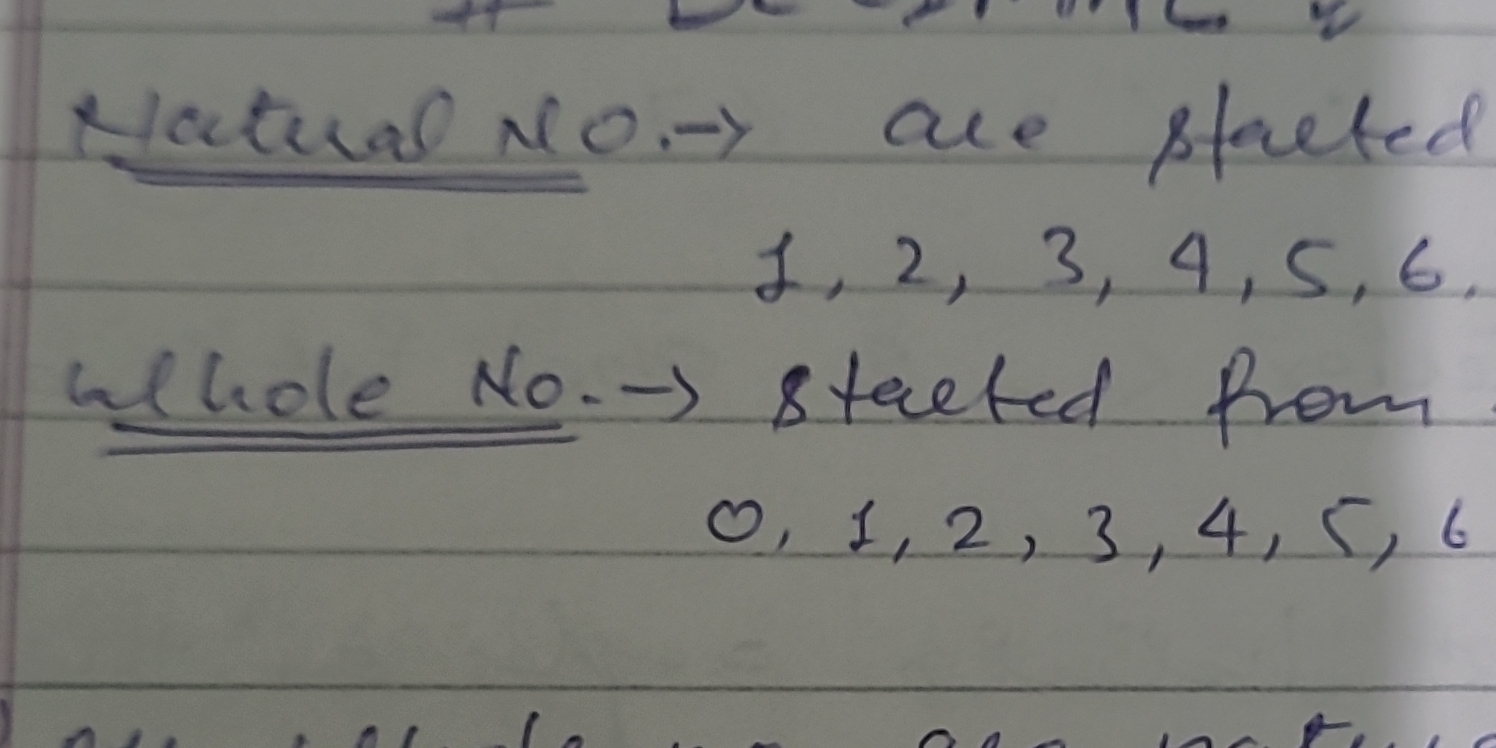 Natural No. → are started
1, 2, 3, 4, 5, 6.
Whole No. → started from
0, 1, 2, 3, 4, 5, 6